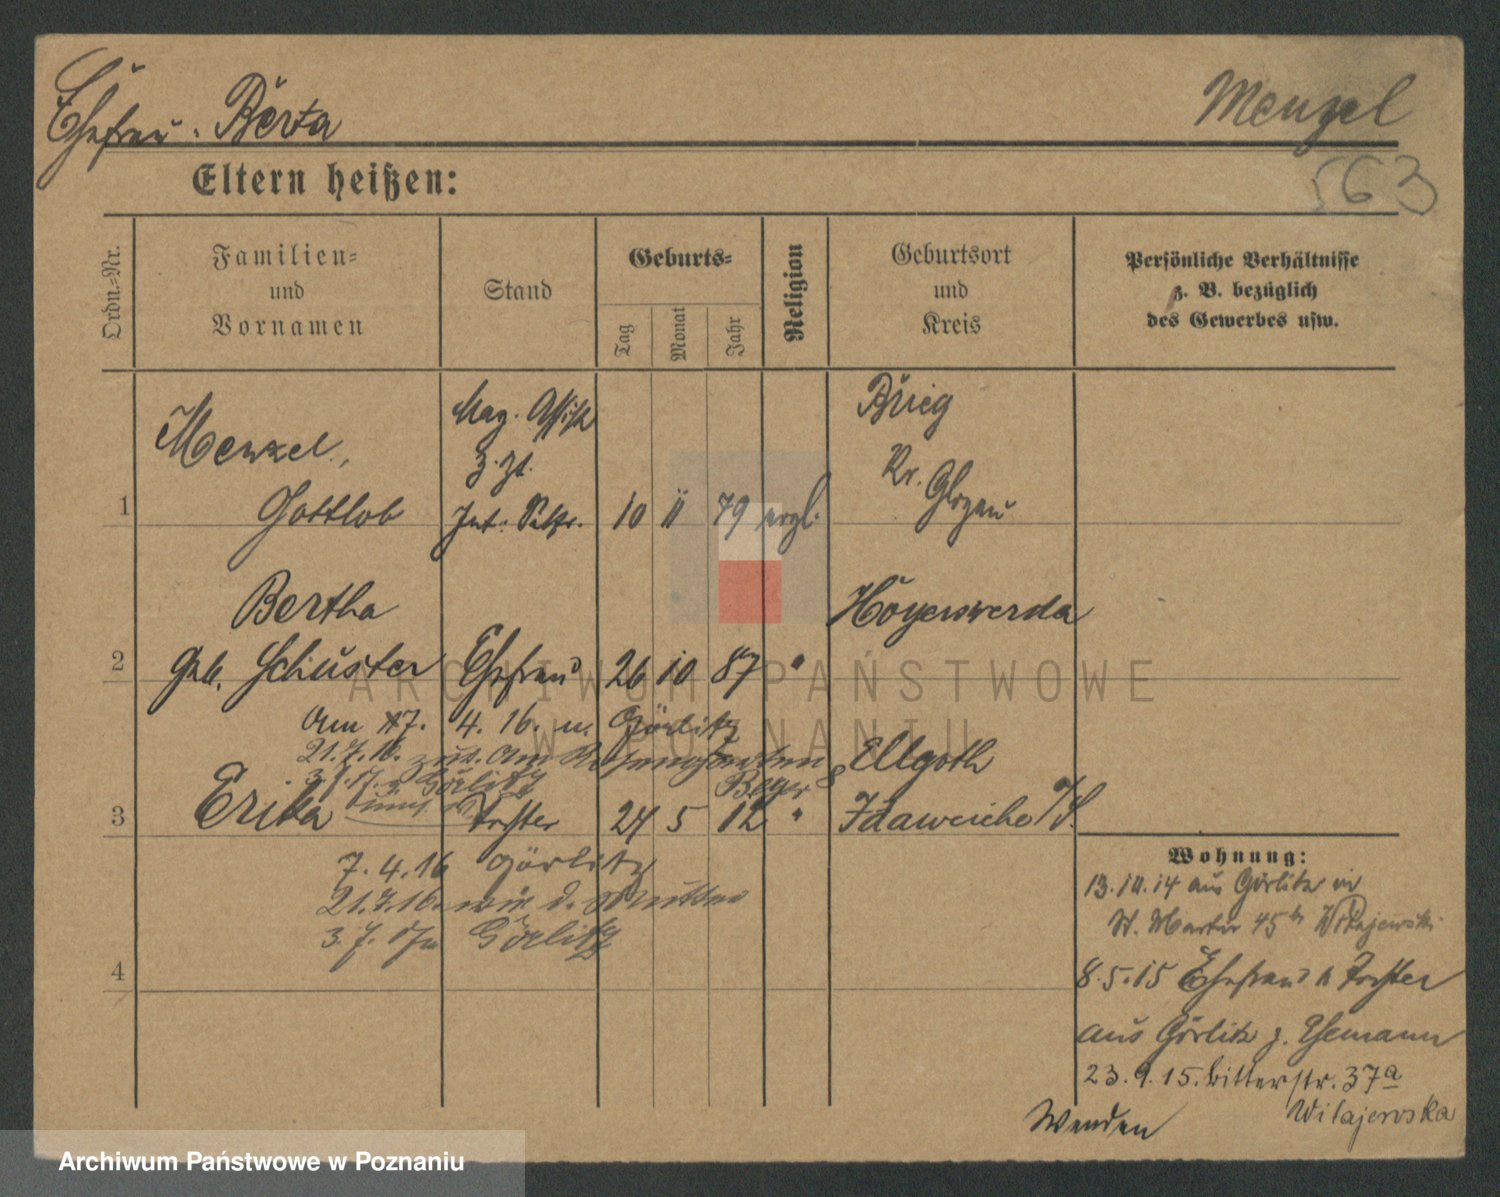 Ehefrau. Berta
Menzel
563
Eltern heißen:
Ordn.-Nr.
Familien-
und
Vornamen
Stand
Geburts-
Tag
Monat
Jahr
Religion
Geburtsort
und
Kreis
Persönliche Verhältnisse
z. B. bezüglich
des Gewerbes usw.
1
Menzel,
Gottlob
Mag. Assist.
z. Zt.
10 11 79
Brieg
Kr. Glogau
2
Bertha
geb. Schuster
Ehefrau
26 10 87
"
Hoyerswerda
Am 4. 16. n. Görlitz
21.7.16. zur. Am
Görlitz
3
Erika
Tochter
24 5 12
"
Ellgoth
Idaweiche
7.4.16 Görlitz
21.7.16. wie d. Mutter
3. 7. Görlitz
4
Wohnung:
13.10.14 aus Görlitz in
St. Martin 45 b Witajewski
8.5.15 Ehefrau u Tochter
aus Görlitz z. Ehemann
23.9.15. Ritterstr. 37a
Witajewska
Wenden
ARCHIWUM PAŃSTWOWE
W POZNANIU
Archiwum Państwowe w Poznaniu